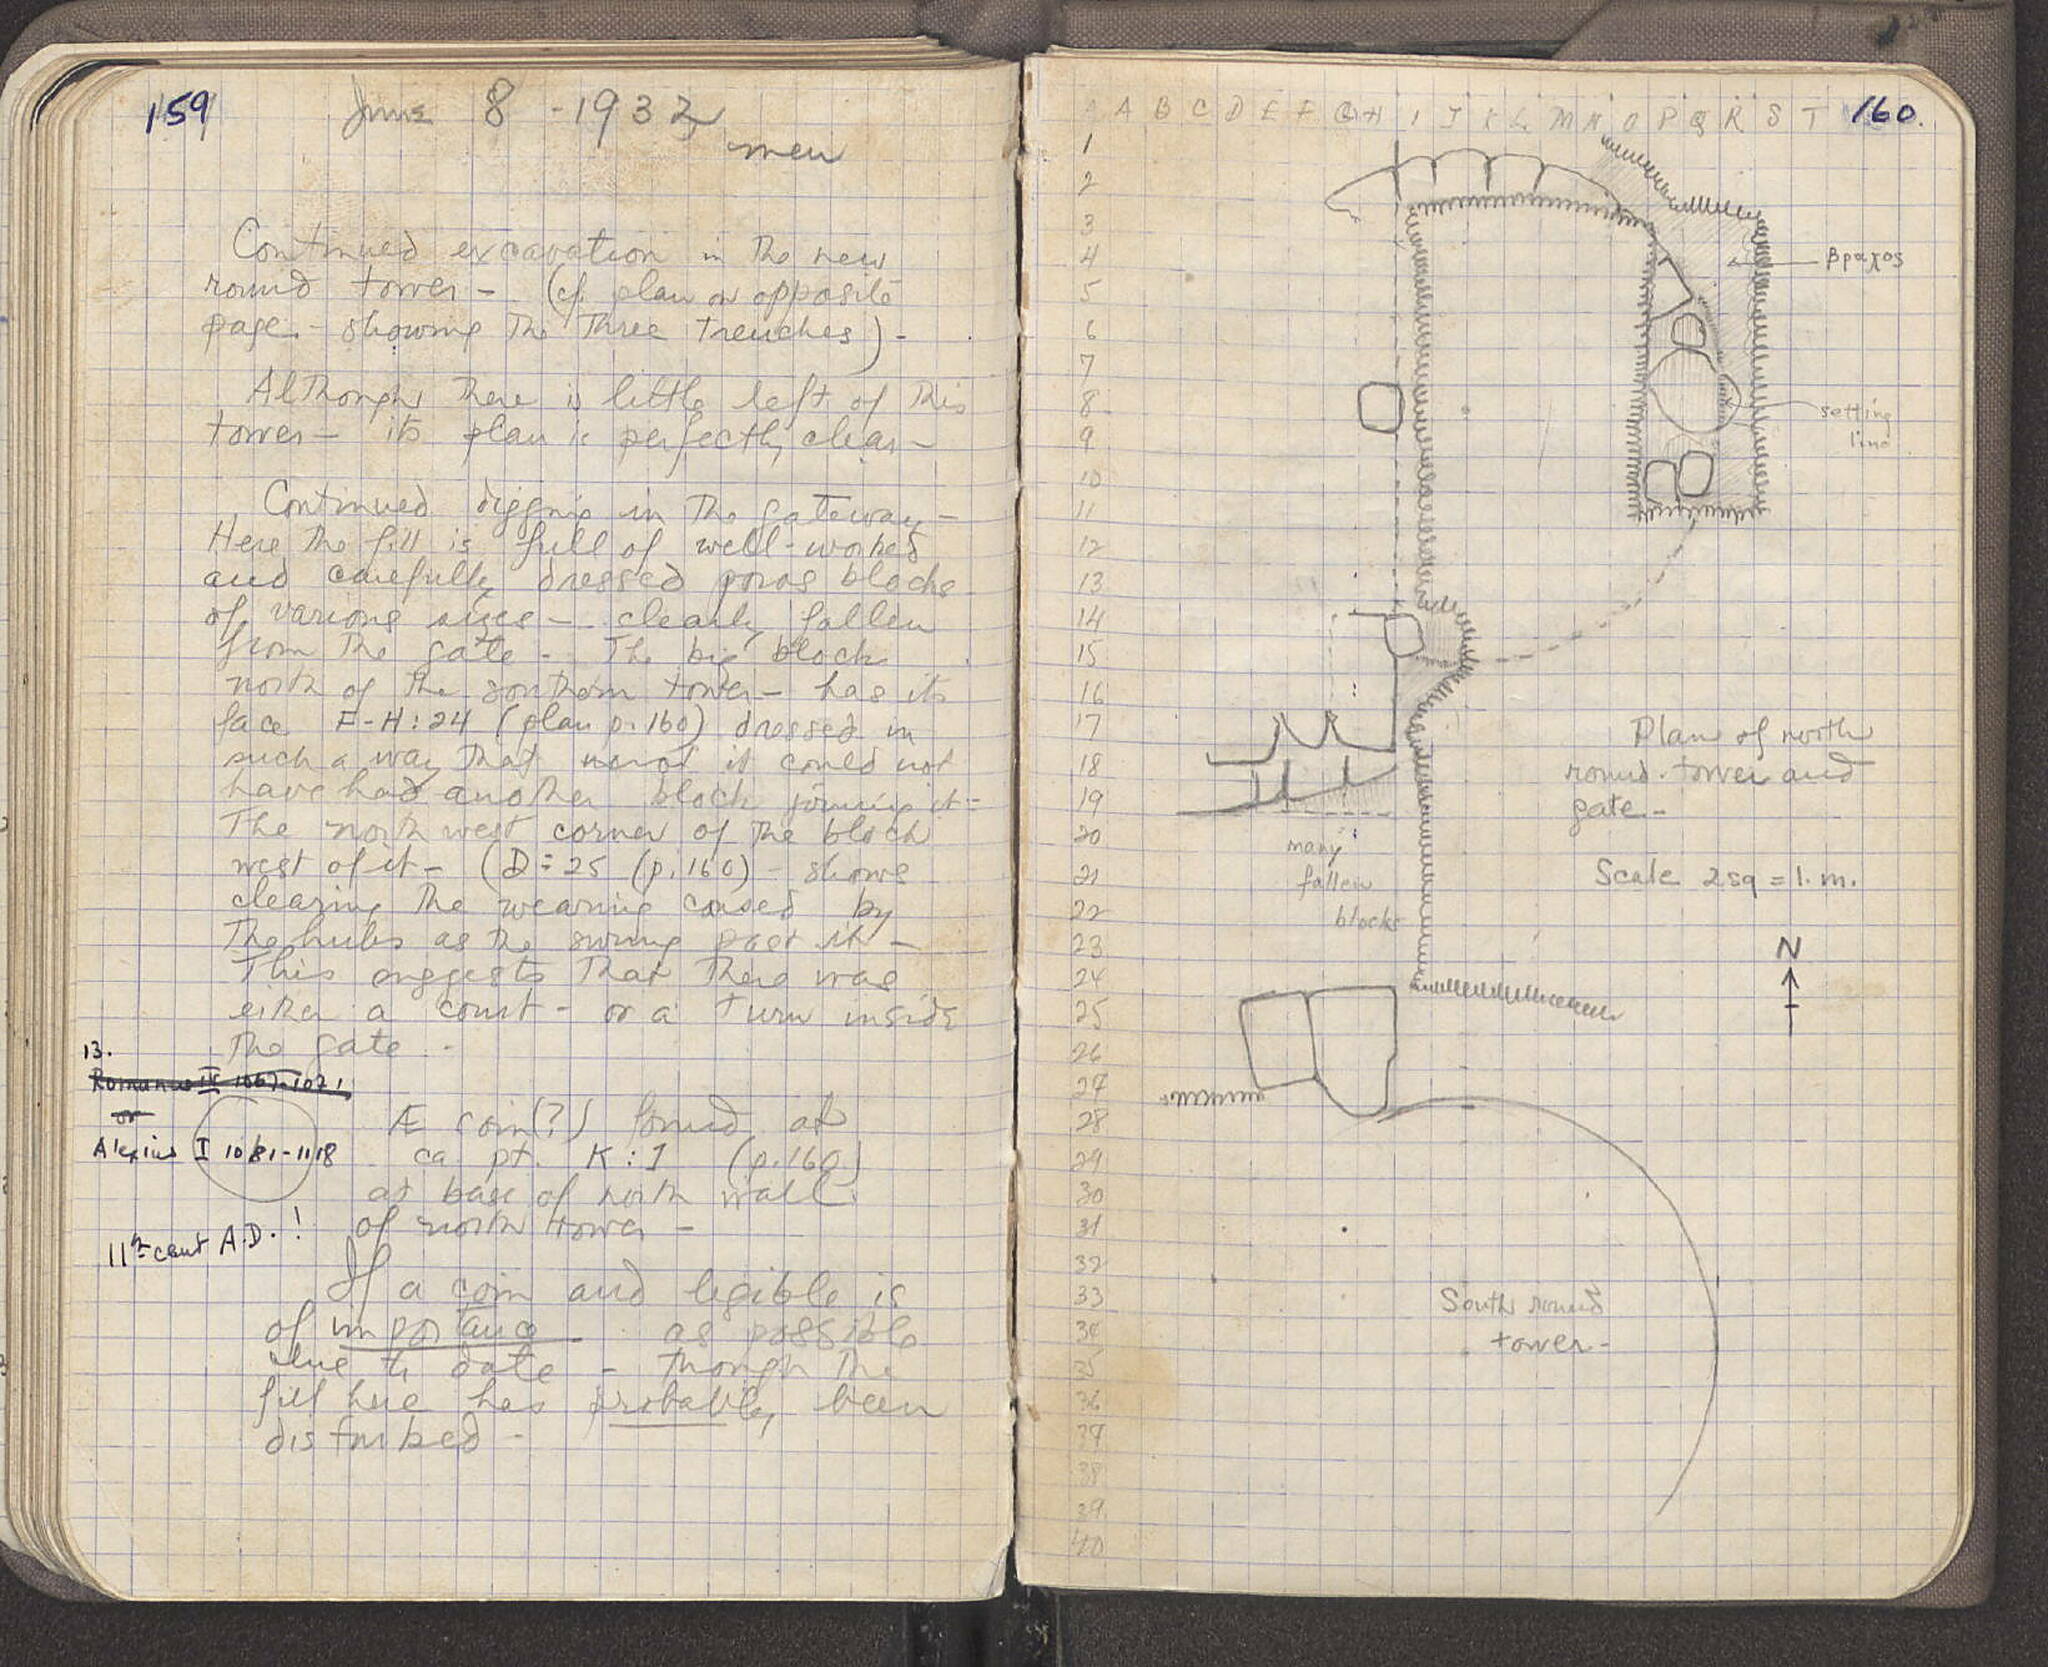 159
June 8 - 1932
men
Continued excavation in the new
round tower - (cf. plan on opposite
page - showing the three trenches) -
Although there is little left of this
tower - its plan is perfectly clear -
Continued digging in the gateway -
Here the fill is full of well-worked
and carefully dressed poros blocks
of various sizes - clearly fallen
from the gate - The big block
north of the southern tower - has its
face F-H:24 (plan p.160) dressed in
such a way that it could not
have had another block joining it -
The north west corner of the block
west of it - (D:25 (p.160) - shows
clearing the wearing caused by
the hubs as the swung past it -
This suggests that there was
either a court - or a turn inside
the gate -
13.
Romanus IV 1067-1071
or
Alexius I 1081-1118
11th cent A.D.!
Æ coin(?) found at
ca. pt. K:1 (p.160)
at base of north wall
of north tower -
If a coin and legible is
of importance as possible
clue to date - though the
fill here has probably been
disturbed -
160.
A B C D E F G H I J K L M N O P Q R S T
1
2
3
4
5
6
7
8
9
10
11
12
13
14
15
16
17
18
19
20
21
22
23
24
25
26
27
28
29
30
31
32
33
34
35
36
37
38
39
40
βραχος
setting
line
Plan of north
round tower and
gate -
many
fallen
blocks
Scale 2 sq = 1. m.
N
South round
tower -